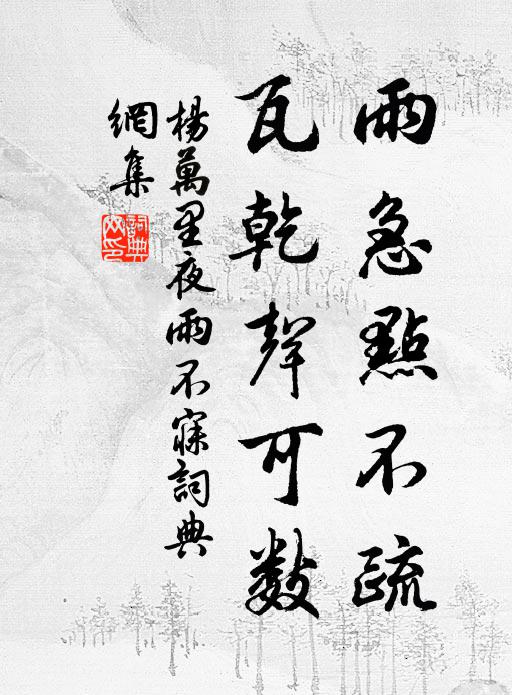 雨急點不疏
瓦乾聲可數
楊萬里夜雨不寐詞典
網集
詞典網印